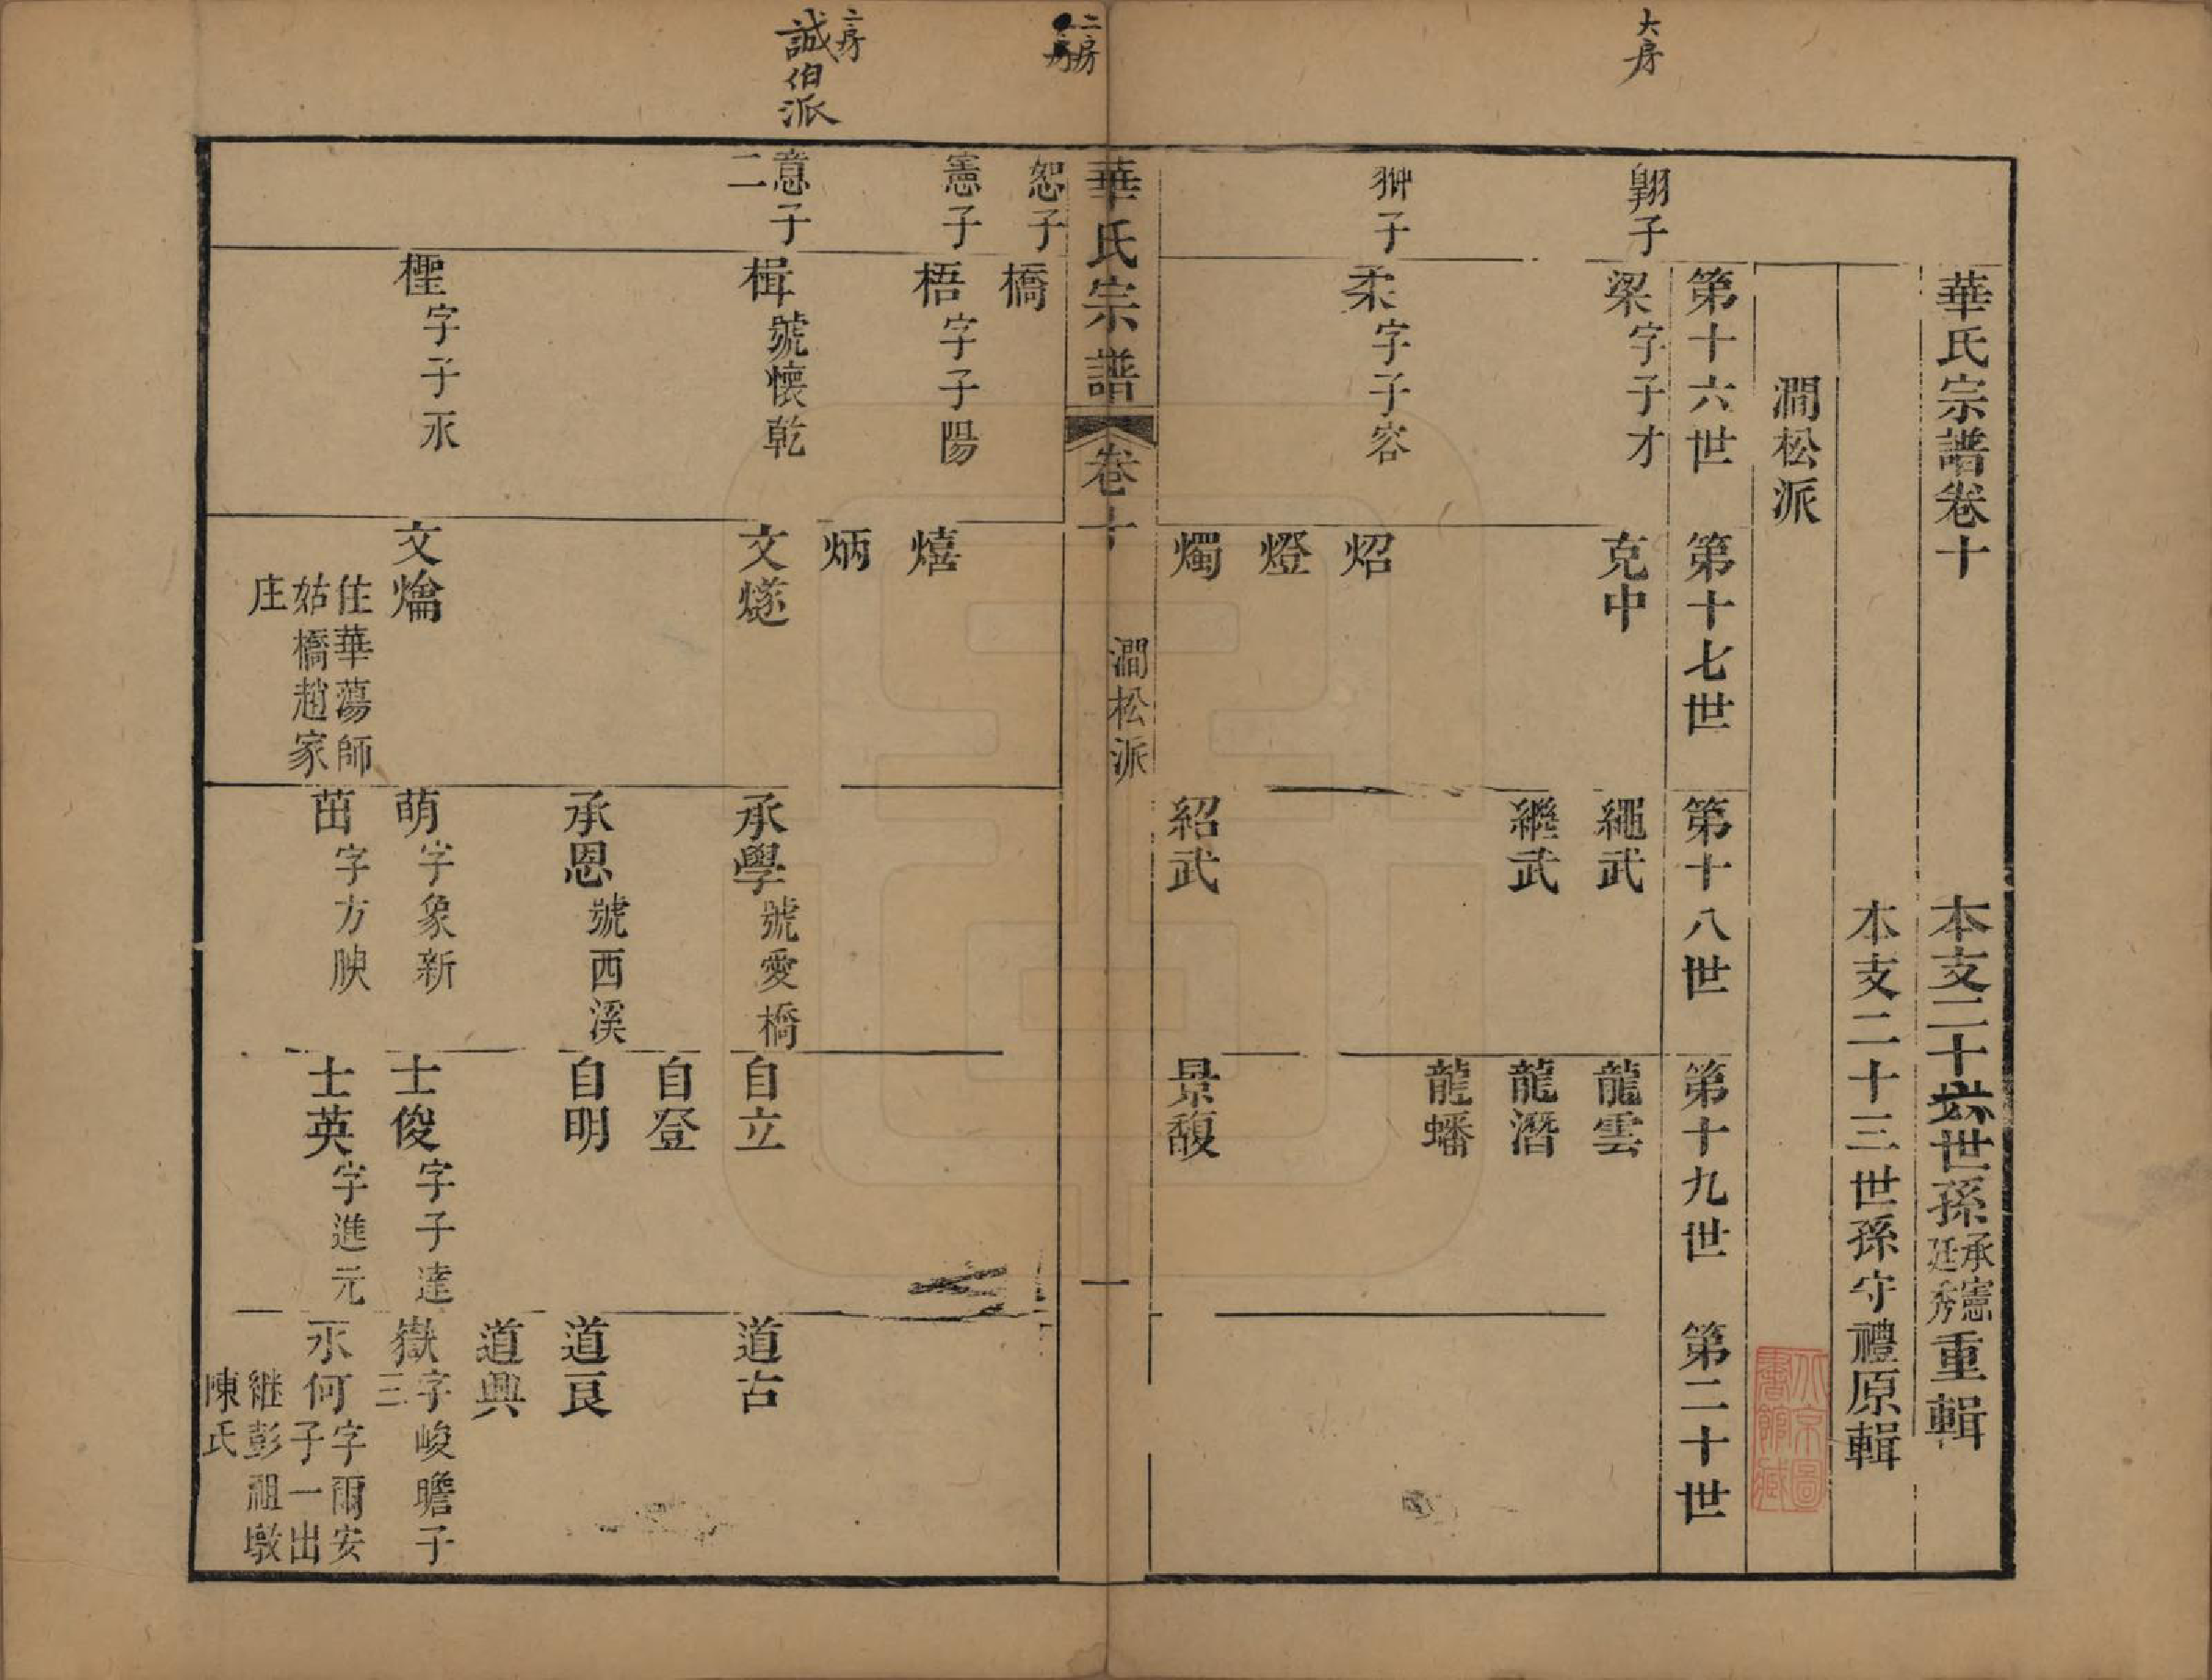 大房
華氏宗譜卷十
本支二十六世孫承憲廷秀重輯
本支二十三世孫守禮原輯
澗松派
第十六世 第十七世 第十八世 第十九世 第二十世
翺子 梁字子才 克中 繩武 龍雲
繼武 龍潛
龍蟠
翀子 柔字子容 炤
燈
燭 紹武 景馥
華氏宗譜 卷十 澗松派 一
二房
恕子 橋
憲子 梧字子陽 熺
炳
二房
誠伯派
意子二 楫號懷乾 文燧 承學號愛橋 自立 道古
自登
承恩號西溪 自明 道良
道興
檉字子永 文爚住華蕩師姑橋趙家庄 萌字象新 士俊字子達 嶽字峻瞻子三
茁字方腴 士英字進元 永何字爾安子一出繼彭祖墩陳氏
北京圖書館藏